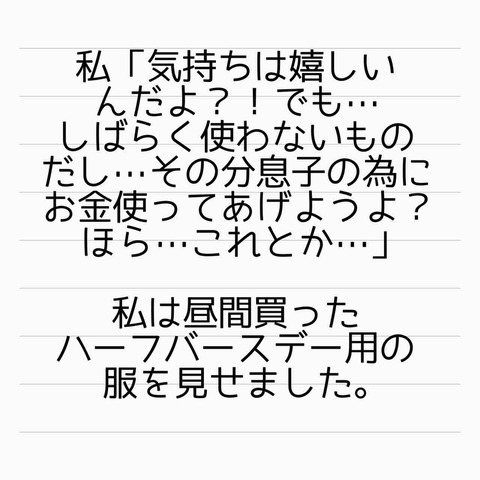 私「気持ちは嬉しい
んだよ？！でも…
しばらく使わないもの
だし…その分息子の為に
お金使ってあげようよ？
ほら…これとか…」
私は昼間買った
ハーフバースデー用の
服を見せました。